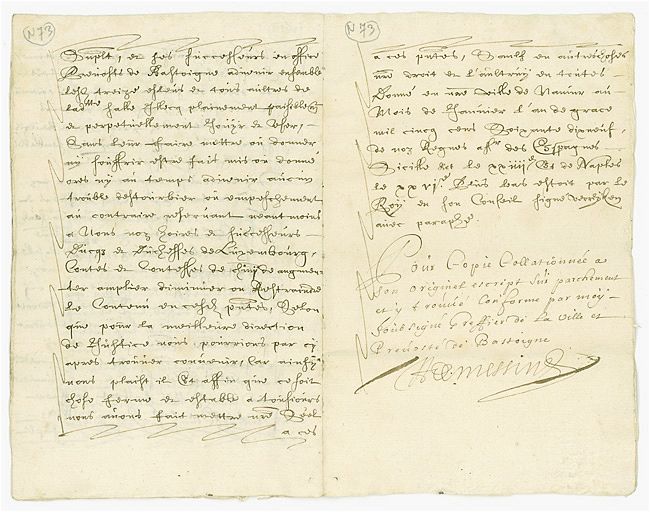 N 73
Supplt, et ses successeurs en office
Prevostz de Bastoigne advenir ensemble
lesd. treize esleus et tous aultres de
ladte halle illecq plainement paisiblemt
et perpetuellement jouyr et user,
Sans leur faire mettre ou donner
ny souffrir estre fait mis ou donne
ores ny au temps advenir aucun
trouble destourbier ou empeschement
au contraire reservant neantmoins
a Nous noz hoires et successeurs
Ducqs et Duchesses de Luxembourg,
Contes et Contesses de Chiny de augmen
ter amplier diminuer ou Restraindre
le Contenu en cesd. pntes, Selon
que pour la meilleure direction
de Justice nous pourrions par cy
apres trouver convenir, Car ainsy
nous plaist il Et affin que ce soit
chose ferme et estable a tousiours
nous avons fait mettre nre Seel
a ces
N 73
a ces pntes, Saulf en aultres choses
nre droit et l'aultruy en toutes
Donne en nre ville de Namur au
Mois de Janvier l'an de grace
mil cincq cens Soixante dixneuf,
de noz Regnes assr. des Espagnes
Sicille Et le xxiiije Et de Naples
le xxvje. Plus bas estoit par le
Roy en son Conseil signe Verreyken
avec paraphe.
Pour Copie Collationnée a
son originel escript sur parchement
et y trouvé Conforme par moy
soubsigné Greffier de la Ville et
Prevosté de Bastoigne